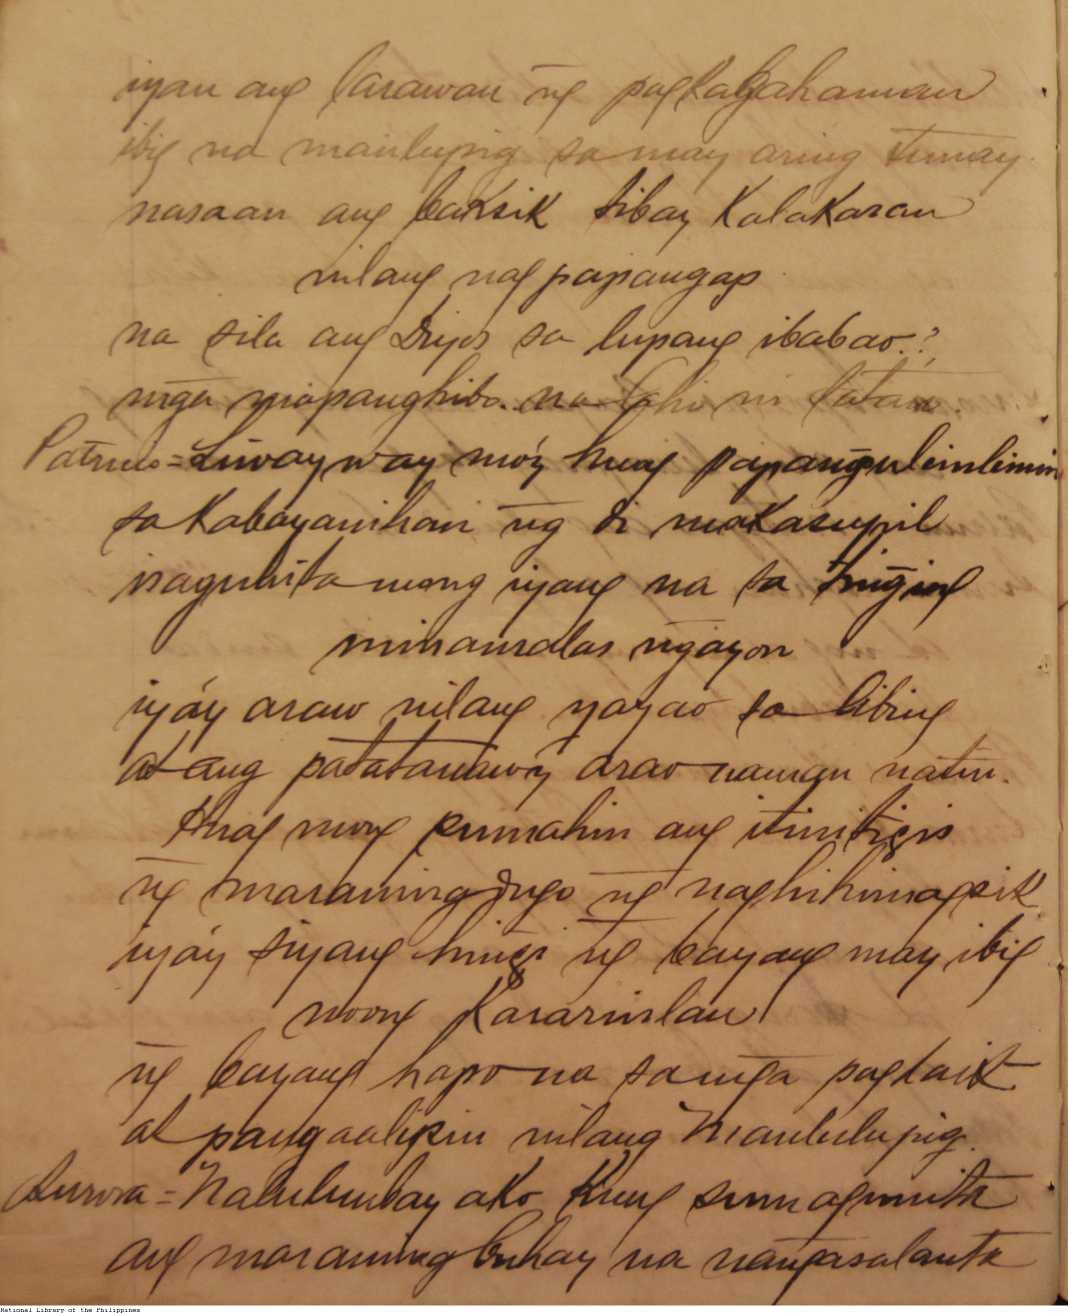 iyan ang larawan n̄g pagkagahaman
ibig na manlupig sa may aring tunay
nasaan ang baksik tibay Kalakaran
nilang nag papangap
na sila ang Diyos sa lupang ibabao.?
mn̄ga mapanghibo na lahi ni Satan.
Patricio = Liwayway moý huag papan̄gulimlimin
sa Kabayanihan n̄g di makasupil
isagunita mong iyang na sa tin̄ging
minamalas n̄gayon
iyáy araw nilang yayao sa libing
at ang patatanawiý arao naman natin.
Huag mong pumahin ang itinitigis
n̄g maraming dugo n̄g naghihimagsik.
iyáy siyang hin̄gi n̄g bayang may ibig
noong Kasarinlan
n̄g bayang hapo na sa mn̄ga paglait
at pangaalipin nilang Manlulupig.
Aurora = Nalulumbay ako Kung sumagunita
ang maraming buhay na nan̄gasalanta
National Library of the Philippines